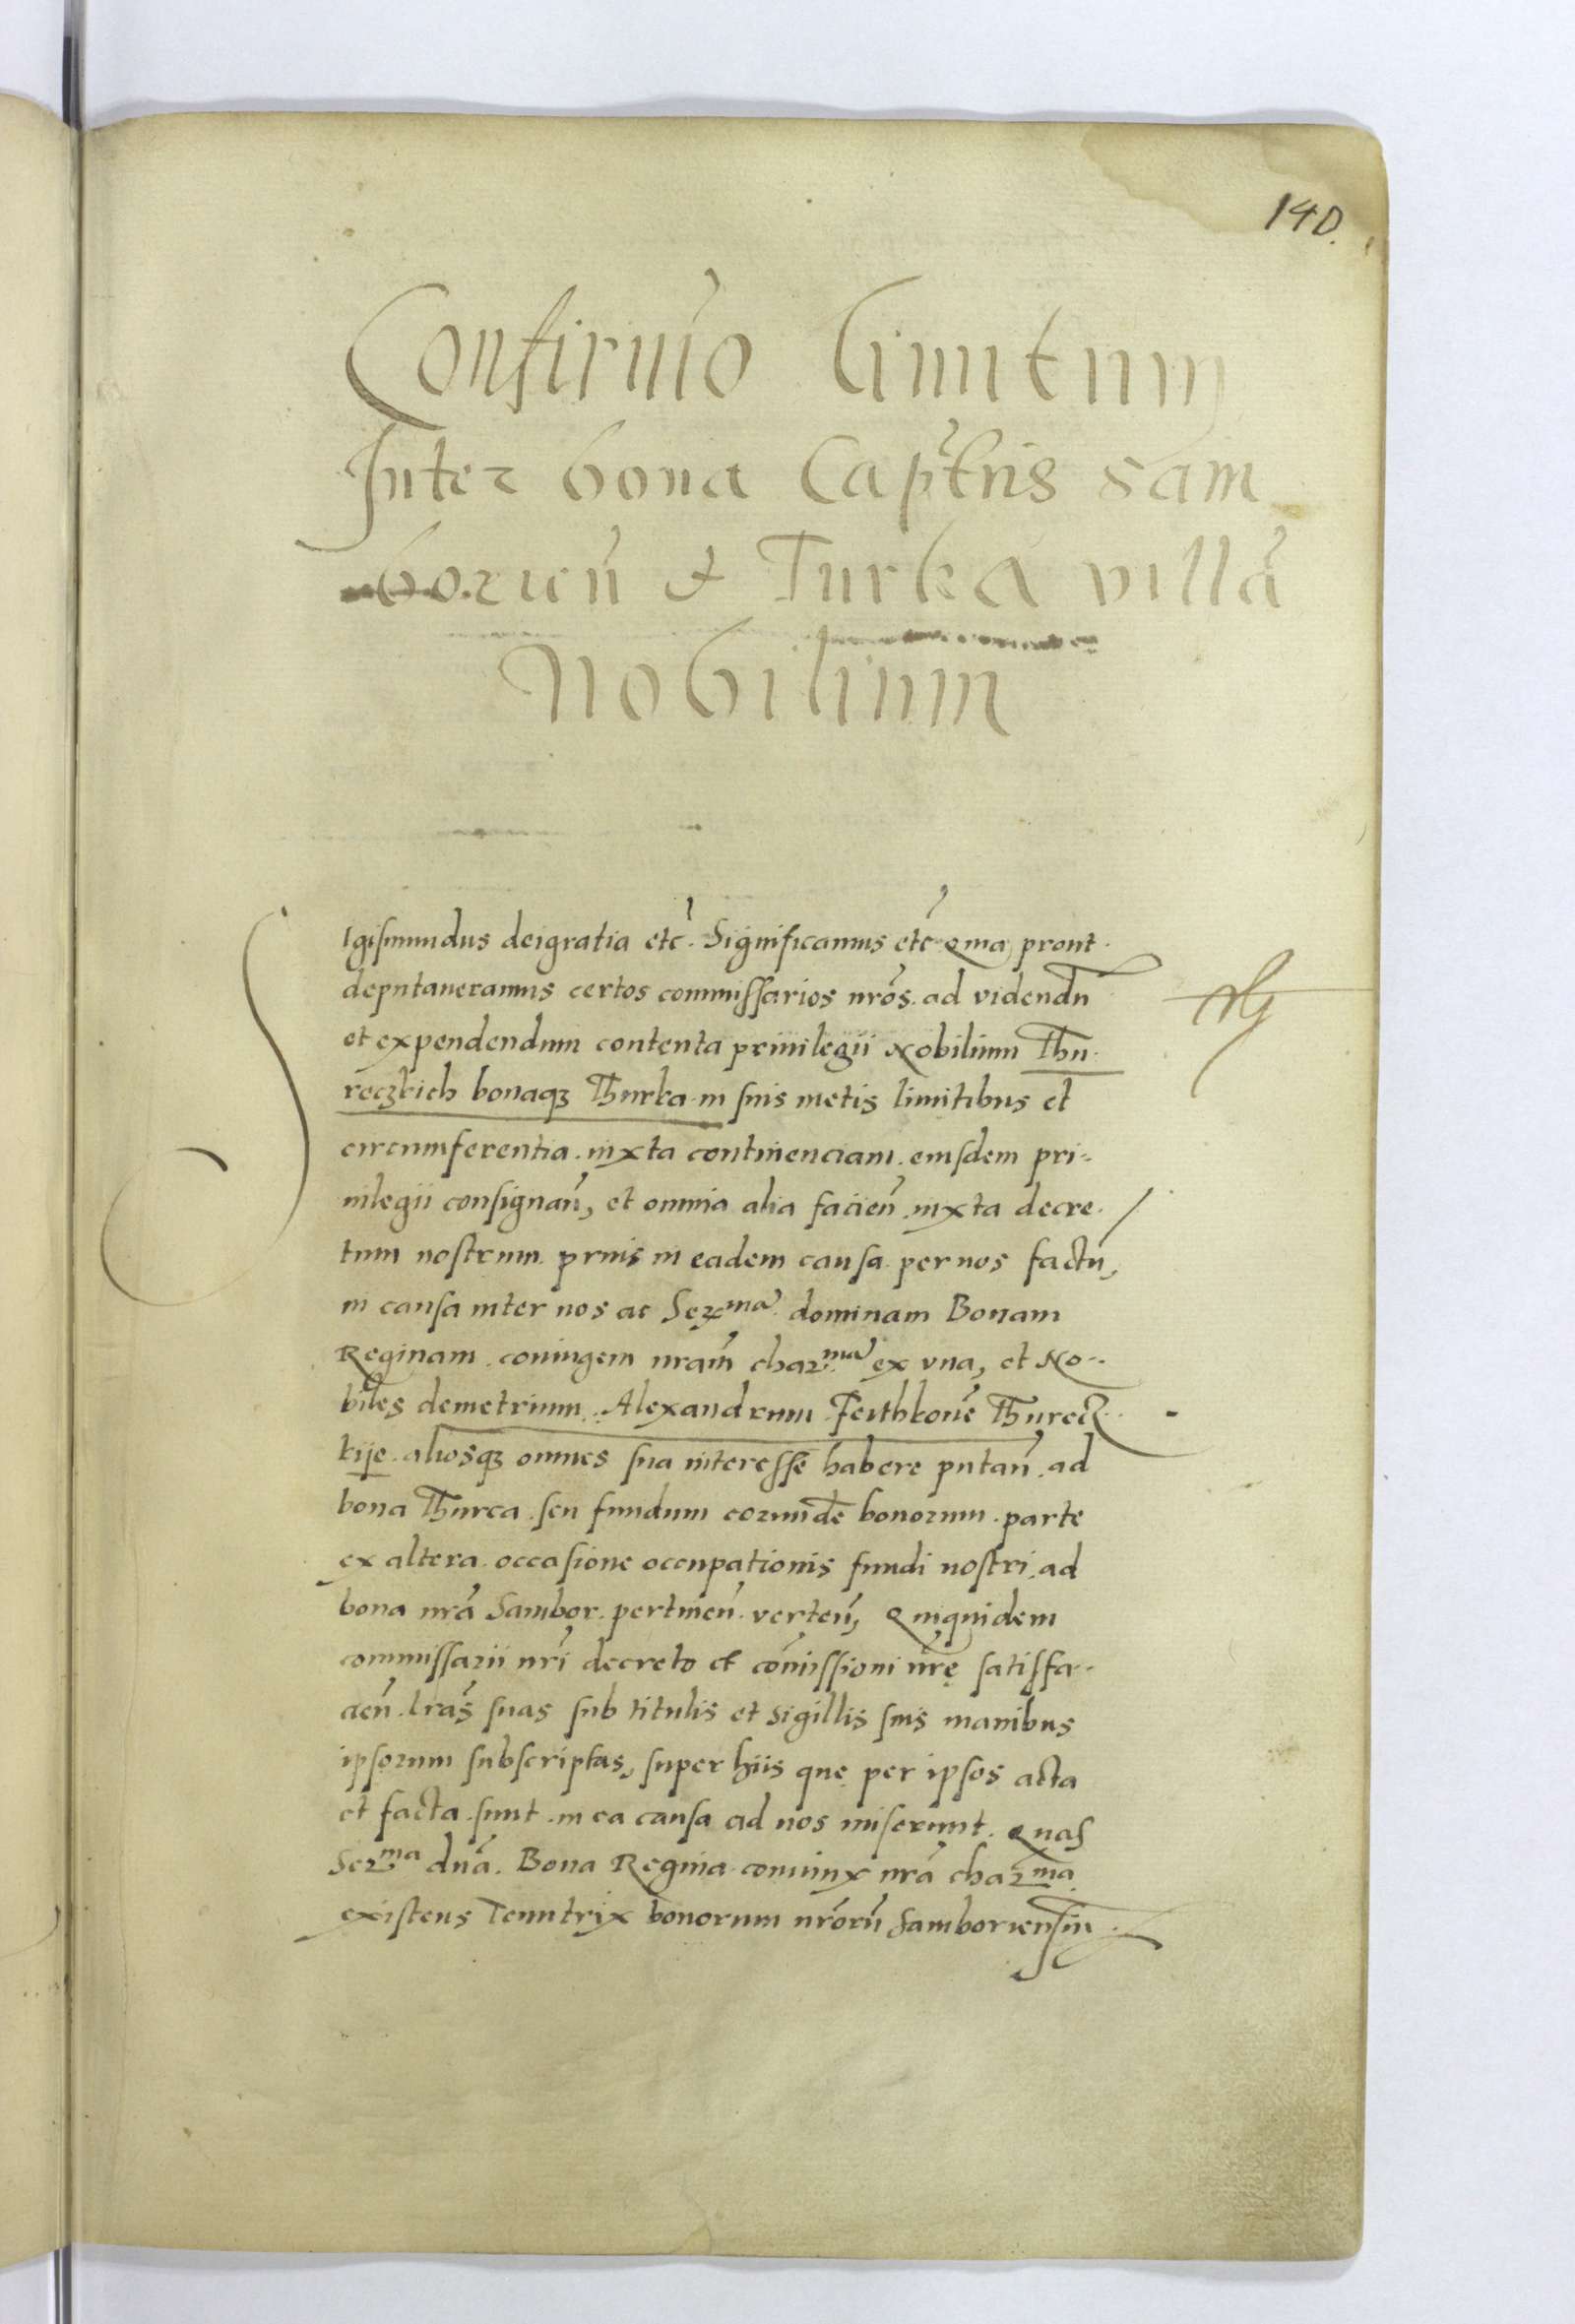 140.
Confirmio limitum
Inter bona Capttris Sam
borien̄ et Turka villā
Nobilium
Sigismundus deigratia etc̄. Significamus etc̄ Quia prout
deputaveramus certos commissarios nrōs. ad videndū
et expendendum contenta privilegii Nobilium Thu
reczkich bonaqȝ Thurka in suis metis limitibus et
circumferentia iuxta continenciam eiusdem pri-
vilegii consignan̄, et omnia alia facien̄ iuxta decre
tum nostrum prius in eadem causa per nos factū,
in causa inter nos ac Serma dominam Bonam
Reginam coniugem nram̄ charma ex una, et No-
biles demetrium Alexandrum Feithkove Thurecz
kije aliosqȝ omnes sua interesse habere putan̄ ad
bona Thurca seu fundum eorundē bonorum parte
ex altera occasione occupationis fundi nostri ad
bona nrā Sambor. pertinen̄ verten̄, Quiquidem
commissarii nrī decreto et com̄issioni nrē satisfa-
cien̄ lrās suas sub titulis et sigillis suis manibus
ipsorum subscriptas, super hiis que per ipsos acta
et facta sunt in ea causa ad nos miserunt. Quas
Serma dnā. Bona Regina coniunx nrā charma
existens Tenutrix bonorum nrōrū Samboriensiū